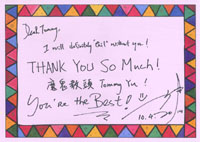 Dear Tommy,
I will definitely "die" without you!
THANK You So Much!
Tommy Yu!
You're the Best!
10.4.